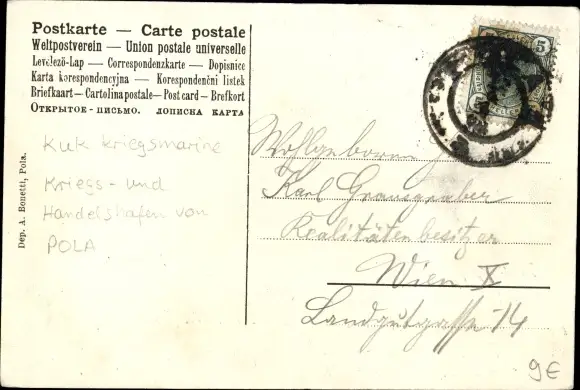 Postkarte — Carte postale
Weltpostverein — Union postale universelle
Levelező-Lap — Correspondenzkarte — Dopisnice
Karta korespondencyjna — Korespondenční listek
Briefkaart — Cartolina postale — Post card — Brefkort
Открытое - письмо. дописна карта
KuK Kriegsmarine
Kriegs- und
Handelshafen von
POLA
Dep. A. Bonetti, Pola.
5
Wohlgeboren
Karl
Realitätenbesitzer
Wien X
Landgutgasse 14
9€